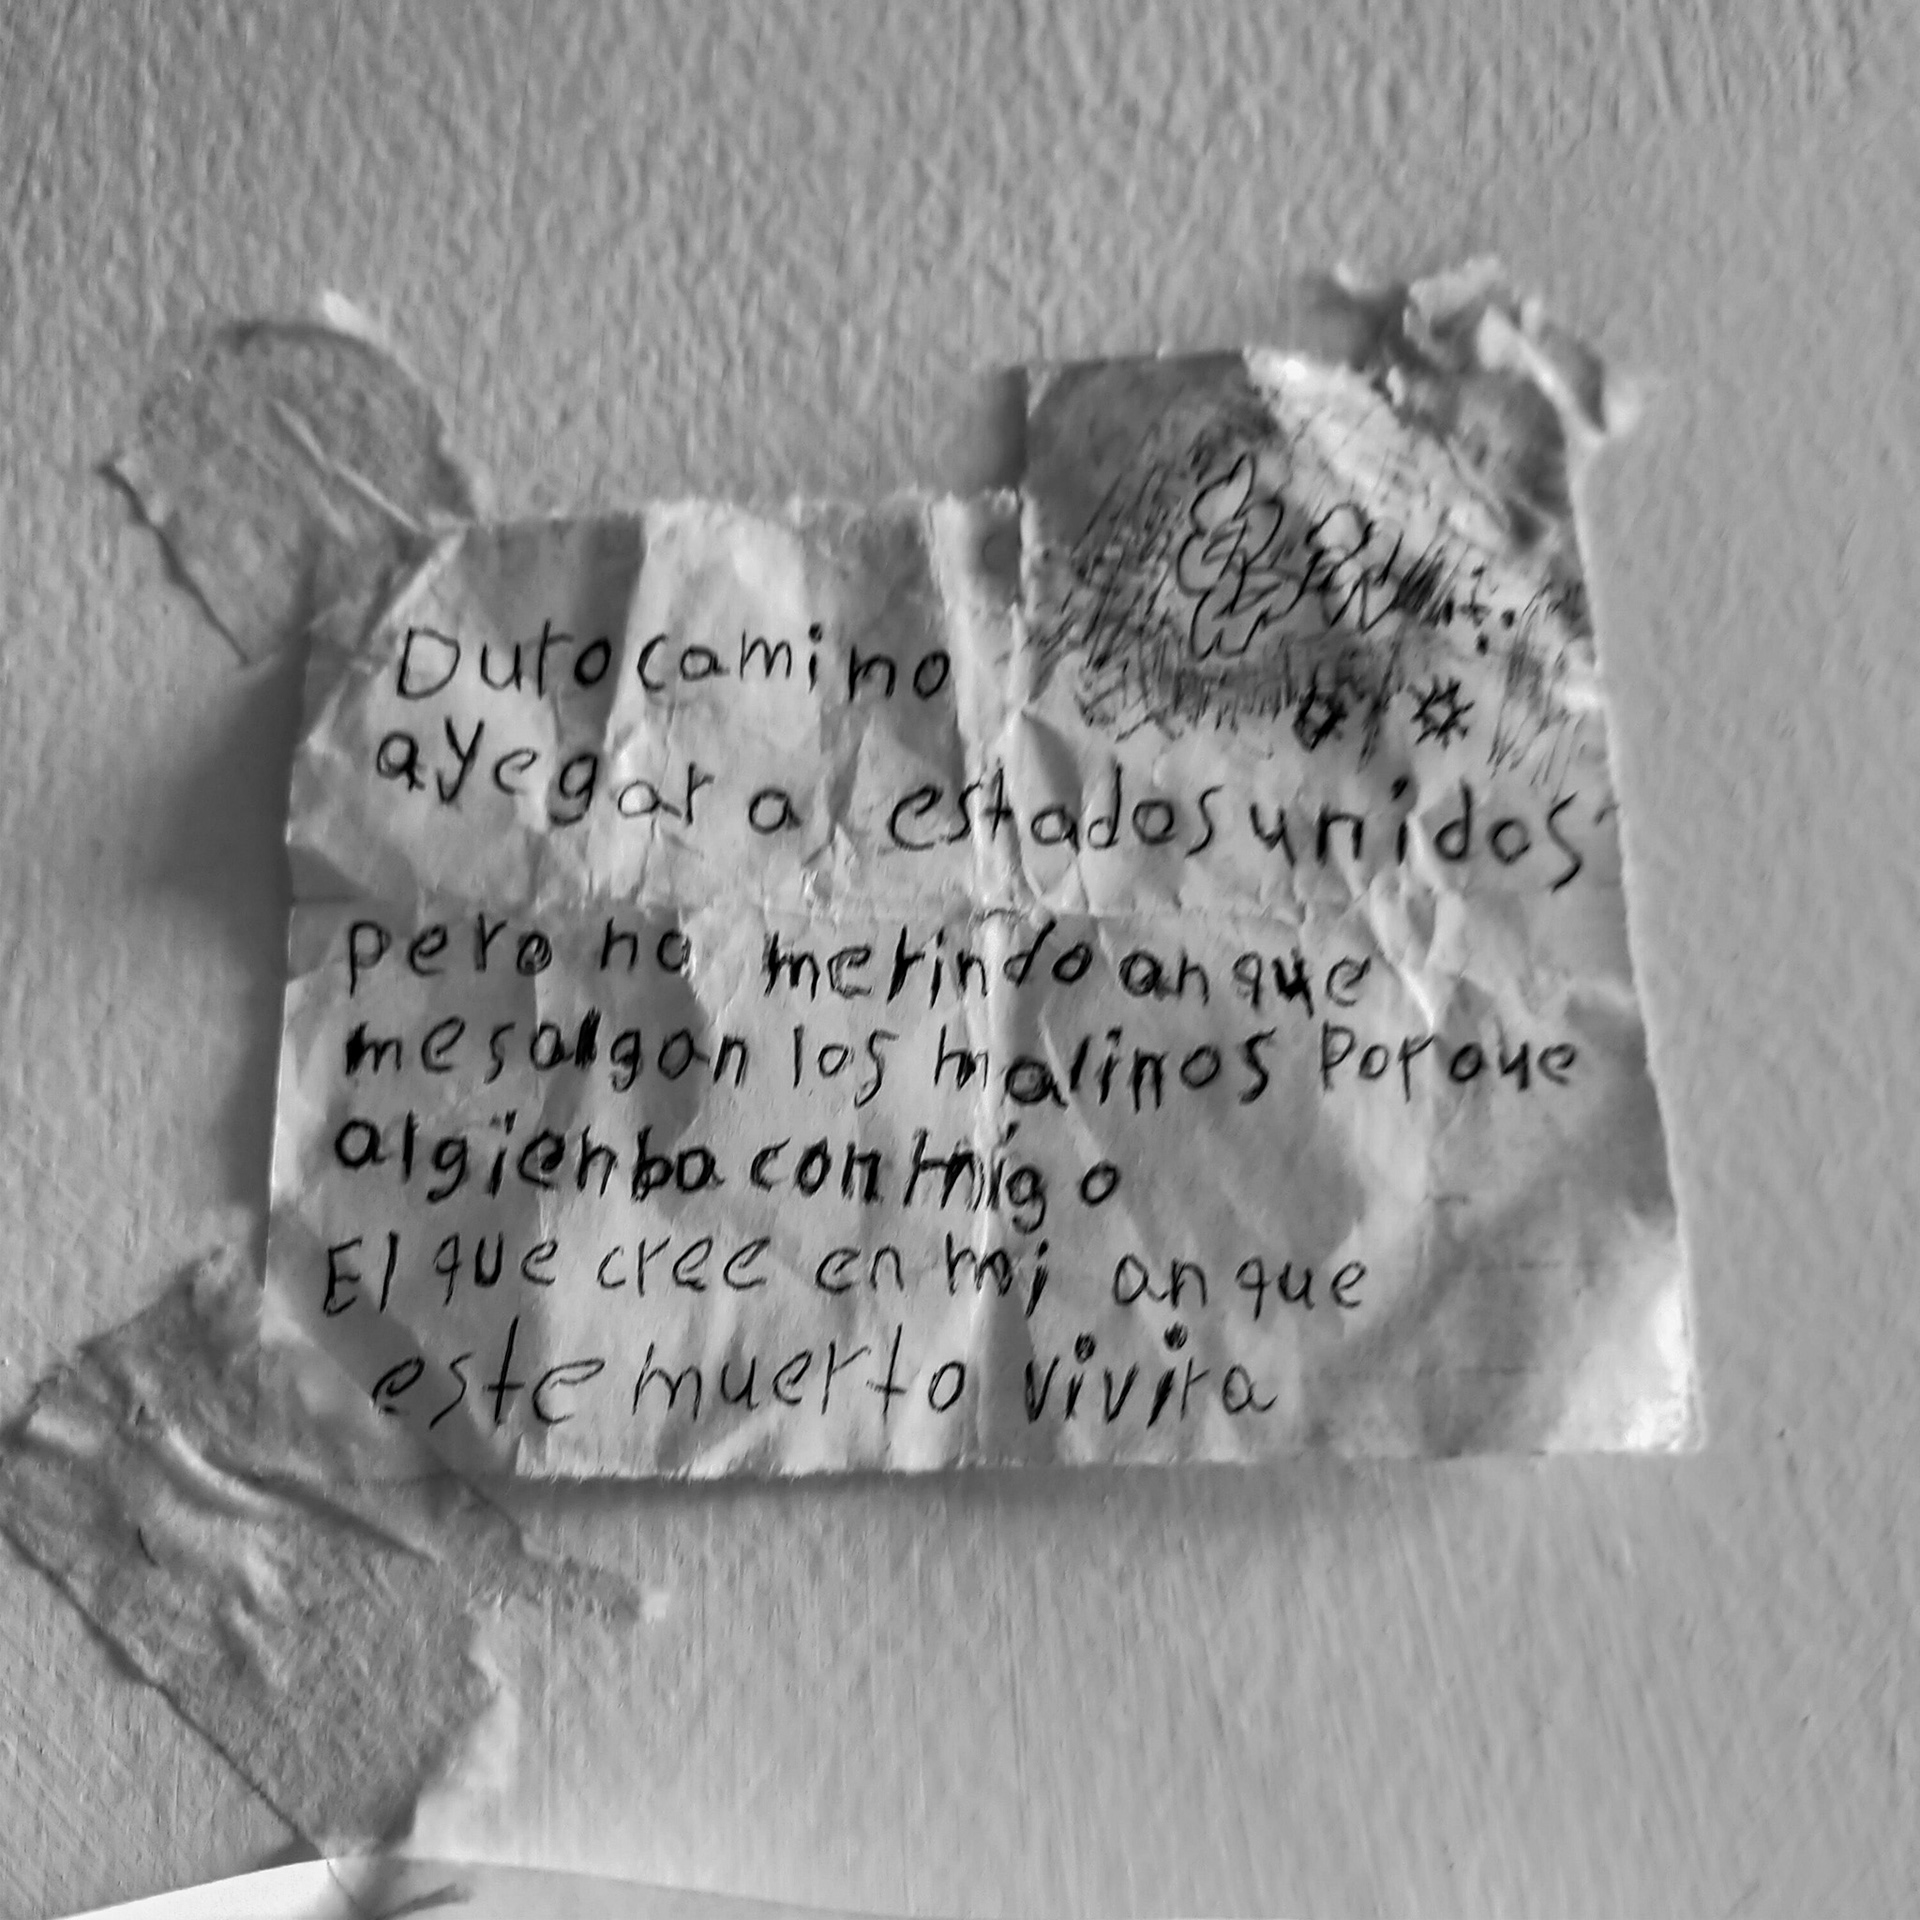 Duro camino
a yegar a estados unidos
pero no me rindo an que
me salgan los malinos Por que
algien ba con migo
El que cree en mi an que
este muerto vivira